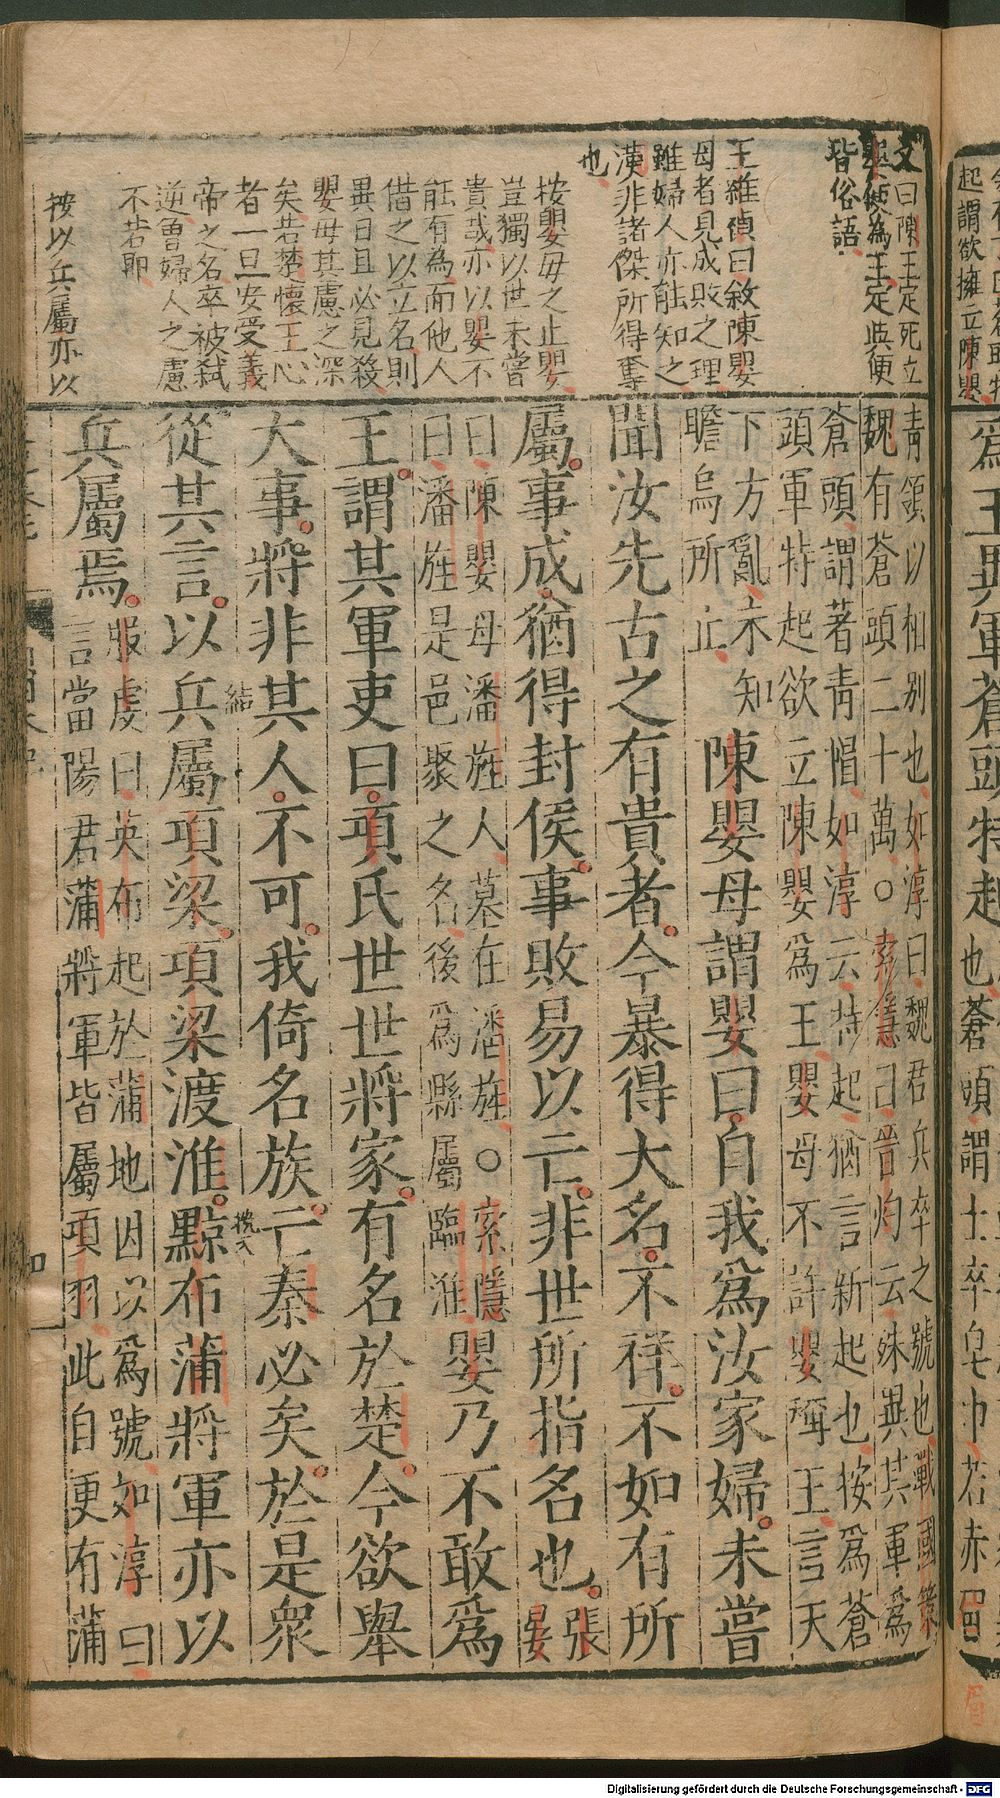 又曰陳王定死立
嬰便為王定與便
皆俗語
王維楨曰敘陳嬰
母者見成敗之理
雖婦人亦能知之
漢非諸傑所得奪
也
按嬰母之止嬰
豈獨以世未嘗
貴哉亦以嬰不
能有為而他人
借之以立名則
異日且必見殺
嬰母其慮之深
矣若楚懷王心
者一旦安受義
帝之名卒被弒
逆曾婦人之慮
不若耶
按以兵屬亦以
青領以相别也如淳曰魏君兵卒之號也戰國策
魏有蒼頭二十萬○索隱曰晉灼云殊異其軍為
蒼頭謂著青帽如淳云特起猶言新起也按為蒼
頭軍特起欲立陳嬰為王嬰母不許嬰稱王言天
下方亂未知
瞻烏所止
陳嬰母謂嬰曰自我為汝家婦未嘗
聞汝先古之有貴者今暴得大名不祥不如有所
屬事成猶得封侯事敗易以亡非世所指名也張
晏
曰陳嬰母潘旌人墓在潘旌○索隱
曰潘旌是邑聚之名後為縣屬臨淮
嬰乃不敢為
王謂其軍吏曰項氏世世將家有名於楚今欲舉
大事將非其人不可我倚名族亡秦必矣於是眾
結
從其言以兵屬項梁項梁渡淮黥布蒲將軍亦以
兵屬焉
服虔曰英布起於蒲地因以為號如淳曰
言當陽君蒲將軍皆屬項羽此自更有蒲
起謂欲擁立陳嬰
為王異軍蒼頭特起
也蒼頭謂士卒皂巾若赤眉
Digitalisierung gefördert durch die Deutsche Forschungsgemeinschaft - DFG